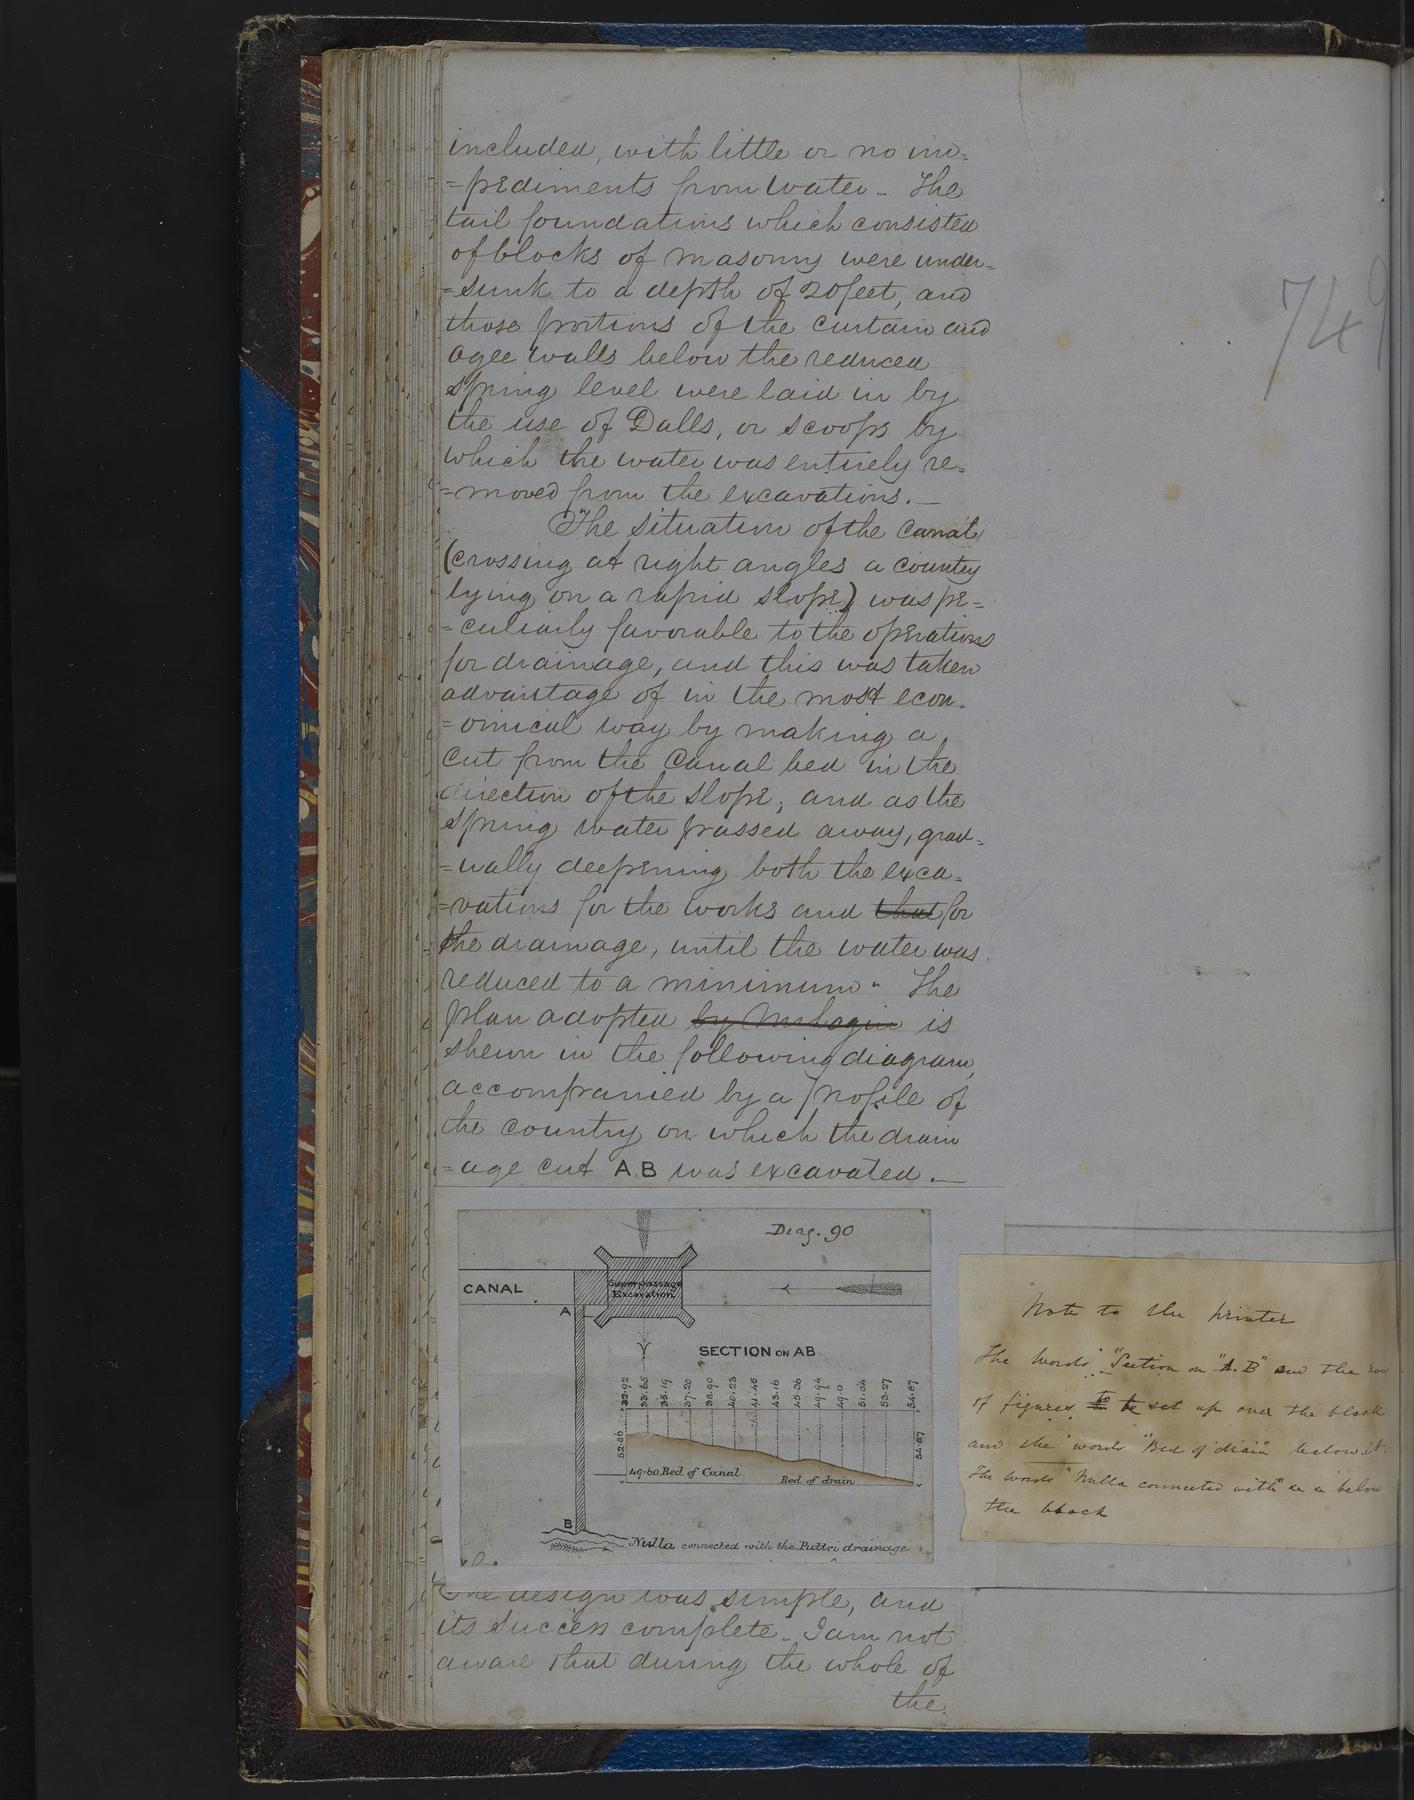 749
included, with little or no im-
=pediments from water - The
tail foundations which consisted
of blocks of masonry were under-
=sunk to a depth of 20 feet, and
those portions of the curtain and
ogee walls below the reduced
spring level were laid in by
the use of Dalls, or scoops by
which the water was entirely re-
=moved from the excavations.—
"The situation of the Canal
(crossing at right angles a country
lying on a rapid slope) was pe=
=culiarly favorable to the operations
for drainage, and this was taken
advantage of in the most econ-
=omical way by making a
cut from the Canal bed in the
direction of the slope; and as the
spring water passed away, grad-
=ually deepening both the exca-
=vations for the works and that for
the drainage, until the water was
reduced to a minimum" The
plan adopted by is
shewn in the following diagram,
accompanied by a profile of
the country on which the drain
=age cut A.B was excavated.—
Diag. 90
CANAL
Superpassage
Excavation
A
SECTION ON AB
32.92
33.65
35.19
37.20
38.90
40.23
41.45
43.16
45.36
49.94
49.0
51.04
53.27
54.87
52.86
54.87
49.60 Bed of Canal
Bed of drain
B
Nulla connected with the Puttri drainage
Note to the printer
The words "Section on "A.B" and the row
of figures to be set up over the block
and the words "Bed of drain" below it.
The words "Nulla connected with" &c &c below
the block
The design was simple, and
its success complete. I am not
aware that during the whole of
the